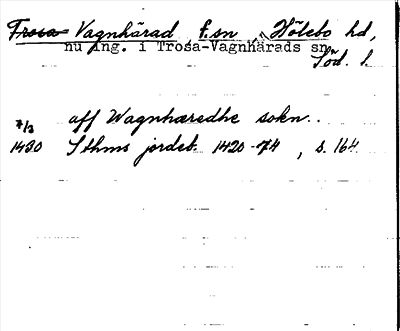 Trosa-Vagnhärad, f. sn, Hölebo hd,
nu ing. i Trosa-Vagnhärads sn
Söd. l.
7/3 aff Wagnhæredhe sokn.
1430 Sthms jordeb. 1420-74, s. 164.